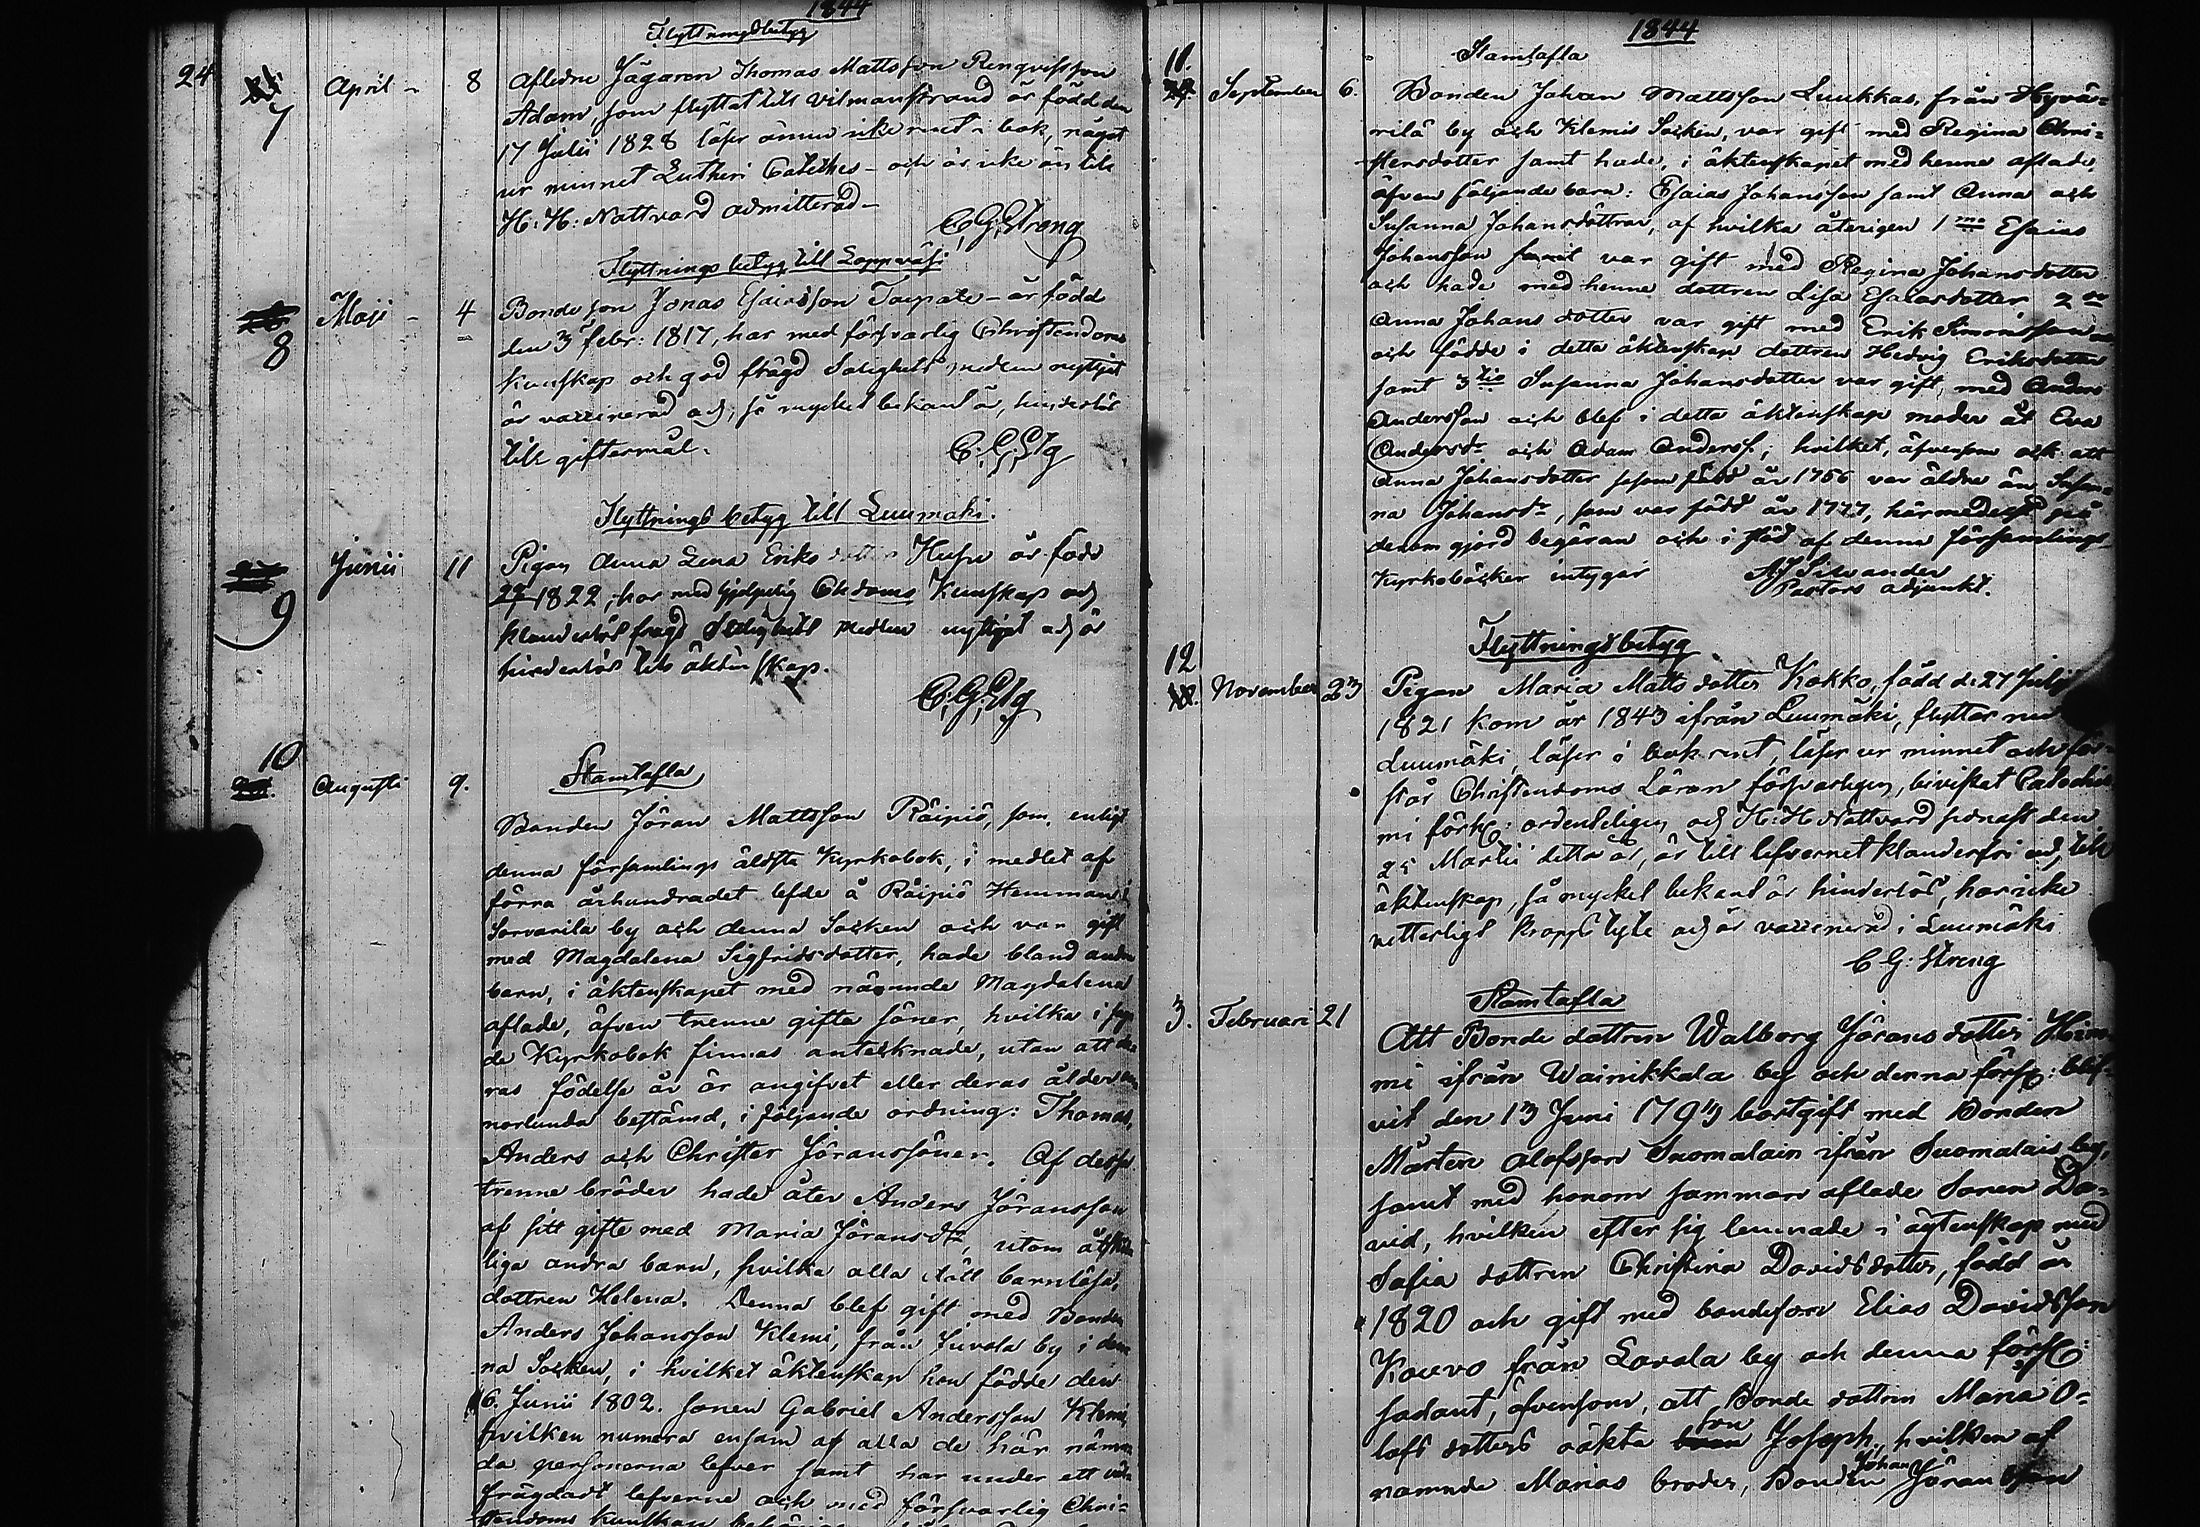 1844
Flyttningsbetyg
24
7
April - 8
Afledne Jägaren Thomas Mattsson Renqvistson
Adam, som flyttat till Vilmanstrand är född den
17 Julii 1828 läser ännu icke rent i bok, något
ur minnet Lutheri Cateches - och är icke än till
H: H: Nattvard admitterad -
C. G. Streng
Flyttnings betyg till Lappväsi
8
Maji - 4
Bonde son Jonas Esaiasson Taipale - är född
den 3 febr: 1817, har med försvarlig Christendoms
Kunskap och god frägd Salighets medlen nyttjat
är vaccinerad och, så mycket bekant är, hinderlös
till giftermål.
C. G. Stg
Flyttnings betyg till Luumäki.
9
Junii 11
Pigan Anna Lena Eriks dotter Husu är född
1822, har med hjelpelig Chdoms Kunskap och
klanderlös frägd Salighets medlen nyttjat och är
hinderlös till äktenskap.
C. G. Stg
10
Augusti 9.
Stamtafla
Bonden Jöran Mattsson Räipiö, som, enligt
denna församlings äldsta Kyrkobok, i medlet af
förra århundradet lefde å Räipiö Hemman i
Sorvarila by och denna Socken och var gift
med Magdalena Sigfridsdotter, hade bland andra
barn, i äktenskapet med nämnde Magdalena
aflade, äfven trenne gifta söner, hvilka i
de Kyrkobok finnas antecknade, utan att de
ras födelse år är angifvet eller deras ålder an
norlunda bestämd, i följande ordning: Thomas,
Anders och Christer Jöranssöner. Af dessa
trenne bröder hade åter Anders Jöransson
af sitt gifte med Maria Jöransdr, utom åtskil
liga andra barn, hvilka alla dödt barnlösa,
dottren Helena. Denna blef gift med Bonden
Anders Johansson Klemi, från Juvala by i den
na Socken, i hvilket äktenskap hon födde den
6. Junii 1802. sonen Gabriel Andersson Klemi,
hvilken numera ensam af alla de här nämn
da personerna lefver samt har under ett väl
frägdadt lefverne och med försvarlig Chri=
stendoms kunskap
1844
Stamtafla
11.
September 6.
Bonden Johan Mattsson Luukkas, från Hyvä=
rilä by och Klemis Socken, var gift med Regina Chri=
stersdotter samt hade, i äktenskapet med henne aflade,
äfven följande barn: Esaias Johansson samt Anna och
Susanna Johansdöttrar, af hvilka återigen 1mo Esaias
Johansson var gift med Regina Johansdotter
och hade med henne dottren Lisa Esaiasdotter 2do
Anna Johans dotter var gift med Erik Simonsson
och födde i detta äktenskap dottren Hedvig Eriksdotter
samt 3tio Susanna Johansdotter var gift med Anders
Andersson och blef i detta äktenskap moder åt Eva
Andersdr och Adam Anderss; hvilket, äfvensom ock att
Anna Johansdotter såsom född år 1756 var äldre än Susan=
na Johansdr, som var född år 1777, härmedelst på
derom gjord begäran och i stöd af denna församlings
Kyrkoböcker intygar
Pastors adjunkt.
Flyttningsbetyg
12
November 23
Pigan Maria Matts dotter Kokko, född d: 27 Julii
1821 kom år 1843 ifrån Luumäki, flyttar nu
Luumäki, läser i bok rent, läser ur minnet och för=
står Christendoms Läran försvarligen, bevistat Catechis
mi förhör ordenteligen och H: H Nattvard senast den
25 Martii detta år, är till lefvernet klanderfri och, till
äktenskap, så mycket bekant är hinderlös, har icke
vitterligt kropps lyte och är vaccinerad i Luumäki
C G: Streng
Stamtafla
3. Februari 21
Att Bonde dottren Walborg Jörans dotter
mi ifrån Wainikkala by och denna förs: blif=
vit den 13 Juni 1793 bortgift med Bonden
Mårten Olofsson Suomalain ifrån Suomalais by,
samt med honom samman aflade Sonen Da=
vid, hvilken efter sig lemnade i ägtenskap med
Sofia dottren Christina Davidsdotter, född år
1820 och gift med bondeson Elias Davidsson
Kouvo från Lavola by och denna förs:
sadant, äfvensom, att Bonde dottren Maria O=
lofs dotters oäkta son Joseph, hvilken af
namnde Marias broder, Bonden Johan Jöransson